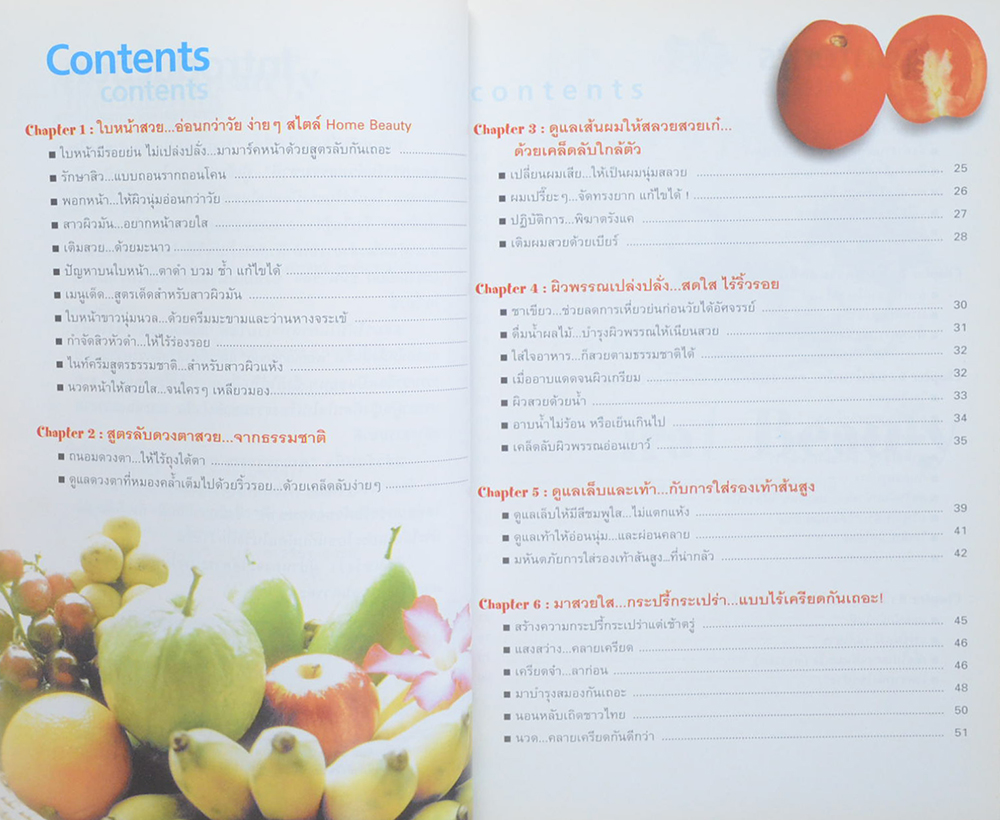 Contents
contents
Chapter 1 : ใบหน้าสวย...อ่อนกว่าวัย ง่ายๆ สไตล์ Home Beauty
■ ใบหน้ามีรอยย่น ไม่เปล่งปลั่ง...มามาร์คหน้าด้วยสูตรลับกันเถอะ
■ รักษาสิว...แบบถอนรากถอนโคน
■ พอกหน้า...ให้ผิวนุ่มอ่อนกว่าวัย
■ สาวผิวมัน...อยากหน้าสวยใส
■ เติมสวย...ด้วยมะนาว
■ ปัญหาบนใบหน้า...ตาดำ บวม ช้ำ แก้ไขได้
■ เมนูเด็ด...สูตรเด็ดสำหรับสาวผิวมัน
■ ใบหน้าขาวนุ่มนวล...ด้วยครีมมะขามและว่านหางจระเข้
■ กำจัดสิวหัวดำ...ให้ไร้ร่องรอย
■ ไนท์ครีมสูตรธรรมชาติ...สำหรับสาวผิวแห้ง
■ นวดหน้าให้สวยใส...จนใครๆ เหลียวมอง
Chapter 2 : สูตรลับดวงตาสวย...จากธรรมชาติ
■ ถนอมดวงตา...ให้ไร้ถุงใต้ตา
■ ดูแลดวงตาที่หมองคล้ำเต็มไปด้วยริ้วรอย...ด้วยเคล็ดลับง่ายๆ
contents
Chapter 3 : ดูแลเส้นผมให้สลวยสวยเก๋...
ด้วยเคล็ดลับใกล้ตัว
■ เปลี่ยนผมเสีย...ให้เป็นผมนุ่มสลวย 25
■ ผมเปรี๊ยะๆ...จัดทรงยาก แก้ไขได้ ! 26
■ ปฏิบัติการ...พิฆาตรังแค 27
■ เติมผมสวยด้วยเบียร์ 28
Chapter 4 : ผิวพรรณเปล่งปลั่ง...สดใส ไร้ริ้วรอย
■ ชาเขียว...ช่วยลดการเหี่ยวย่นก่อนวัยได้อัศจรรย์ 30
■ ดื่มน้ำผลไม้...บำรุงผิวพรรณให้เนียนสวย 31
■ ใส่ใจอาหาร...ก็สวยตามธรรมชาติได้ 32
■ เมื่ออาบแดดจนผิวเกรียม 32
■ ผิวสวยด้วยน้ำ 33
■ อาบน้ำไม่ร้อน หรือเย็นเกินไป 34
■ เคล็ดลับผิวพรรณอ่อนเยาว์ 35
Chapter 5 : ดูแลเล็บและเท้า...กับการใส่รองเท้าส้นสูง
■ ดูแลเล็บให้มีสีชมพูใส...ไม่แตกแห้ง 39
■ ดูแลเท้าให้อ่อนนุ่ม...และผ่อนคลาย 41
■ มหันตภัยการใส่รองเท้าส้นสูง...ที่น่ากลัว 42
Chapter 6 : มาสวยใส...กระปรี้กระเปร่า...แบบไร้เครียดกันเถอะ!
■ สร้างความกระปรี้กระเปร่าแต่เช้าตรู่ 45
■ แสงสว่าง...คลายเครียด 46
■ เครียดจ๋า...ลาก่อน 46
■ มาบำรุงสมองกันเถอะ 48
■ นอนหลับเถิดชาวไทย 50
■ นวด...คลายเครียดกันดีกว่า 51